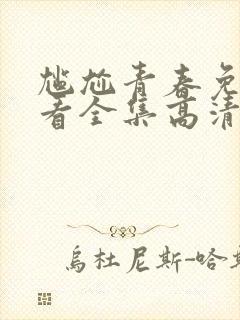 尴尬青春免
看全集高清
乌杜尼斯-哈